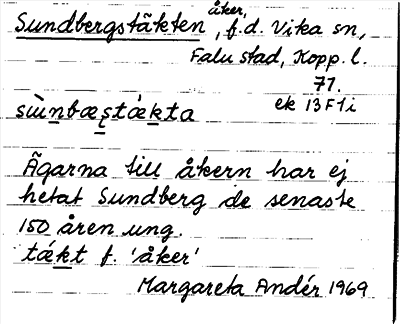 Sundbergstäkten, åker, f.d. Vika sn,
Falu stad, Kopp. l.
71.
ek 13F1i
sùnbæṣtákta
Ägarna till åkern har ej
hetat Sundberg de senaste
150 åren ung.
tǽkt f. 'åker'
Margareta Andér 1969